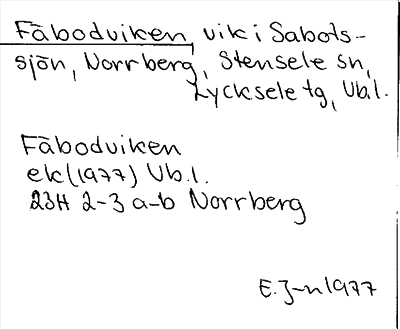 Fäbodviken, vik i Sabots-
sjön, Norrberg, Stensele sn,
Lycksele tg, Vb.l.
Fäbodviken
ek (1977) Vb.l.
23H 2-3 a-b Norrberg
E.J-n 1977